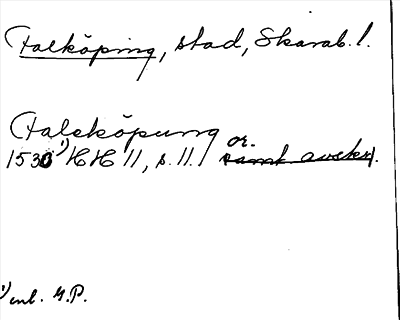 Falköping, stad, Skarab. l.
Falsköpung
1530 1) HH 11, s. 11. or. samt avskr.
1) enl. G.P.